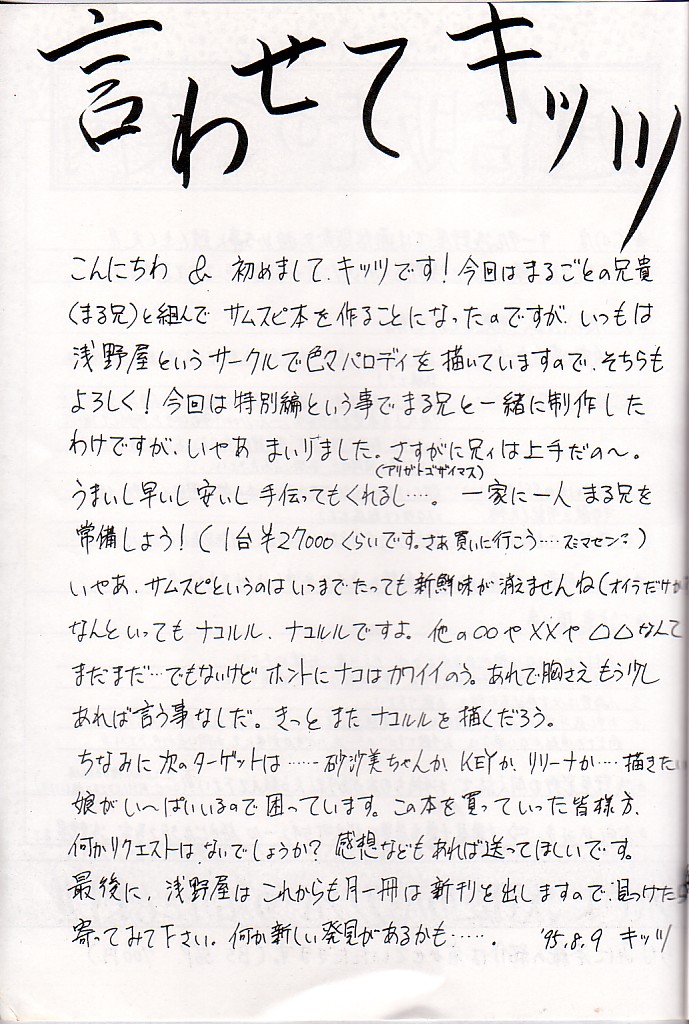 言わせてキッツ
こんにちわ & 初めまして、キッツです！今回はまるごとの兄貴
（まる兄）と組んで サムスピ本を作ることになったのですが、いつもは
浅野屋というサークルで色々パロディを描いていますので、そちらも
よろしく！今回は特別編という事でまる兄と一緒に制作した
わけですが、いやあ まいりました。さすがに兄ィは上手だの〜。
（アリガトゴザイマス）
うまいし早いし安いし手伝ってもくれるし‥‥。一家に一人 まる兄を
常備しよう！（1台¥27000くらいです。さあ買いに行こう‥‥スミマセン？）
いやあ、サムスピというのはいつまでたっても新鮮味が消えませんね（オイラだけか
なんといっても ナコルル、ナコルルですよ。他の○○や××や△△なんて
まだまだ…でもないけど ホントにナコはカワイイのう。あれで胸さえもう少し
あれば言う事なしだ。きっとまたナコルルを描くだろう。
ちなみに次のターゲットは‥‥‥砂沙美ちゃんか、KEYか、リリーナか‥‥描きたい
娘がい〜ぱいいるので困っています。この本を買っていった皆様方、
何かリクエストは、ないでしょうか？感想などもあれば送ってほしいです。
最後に、浅野屋はこれからも月一冊は新刊を出しますので、見つけたら
寄ってみて下さい。何か新しい発見があるかも‥‥‥。 '95.8.9 キッツ